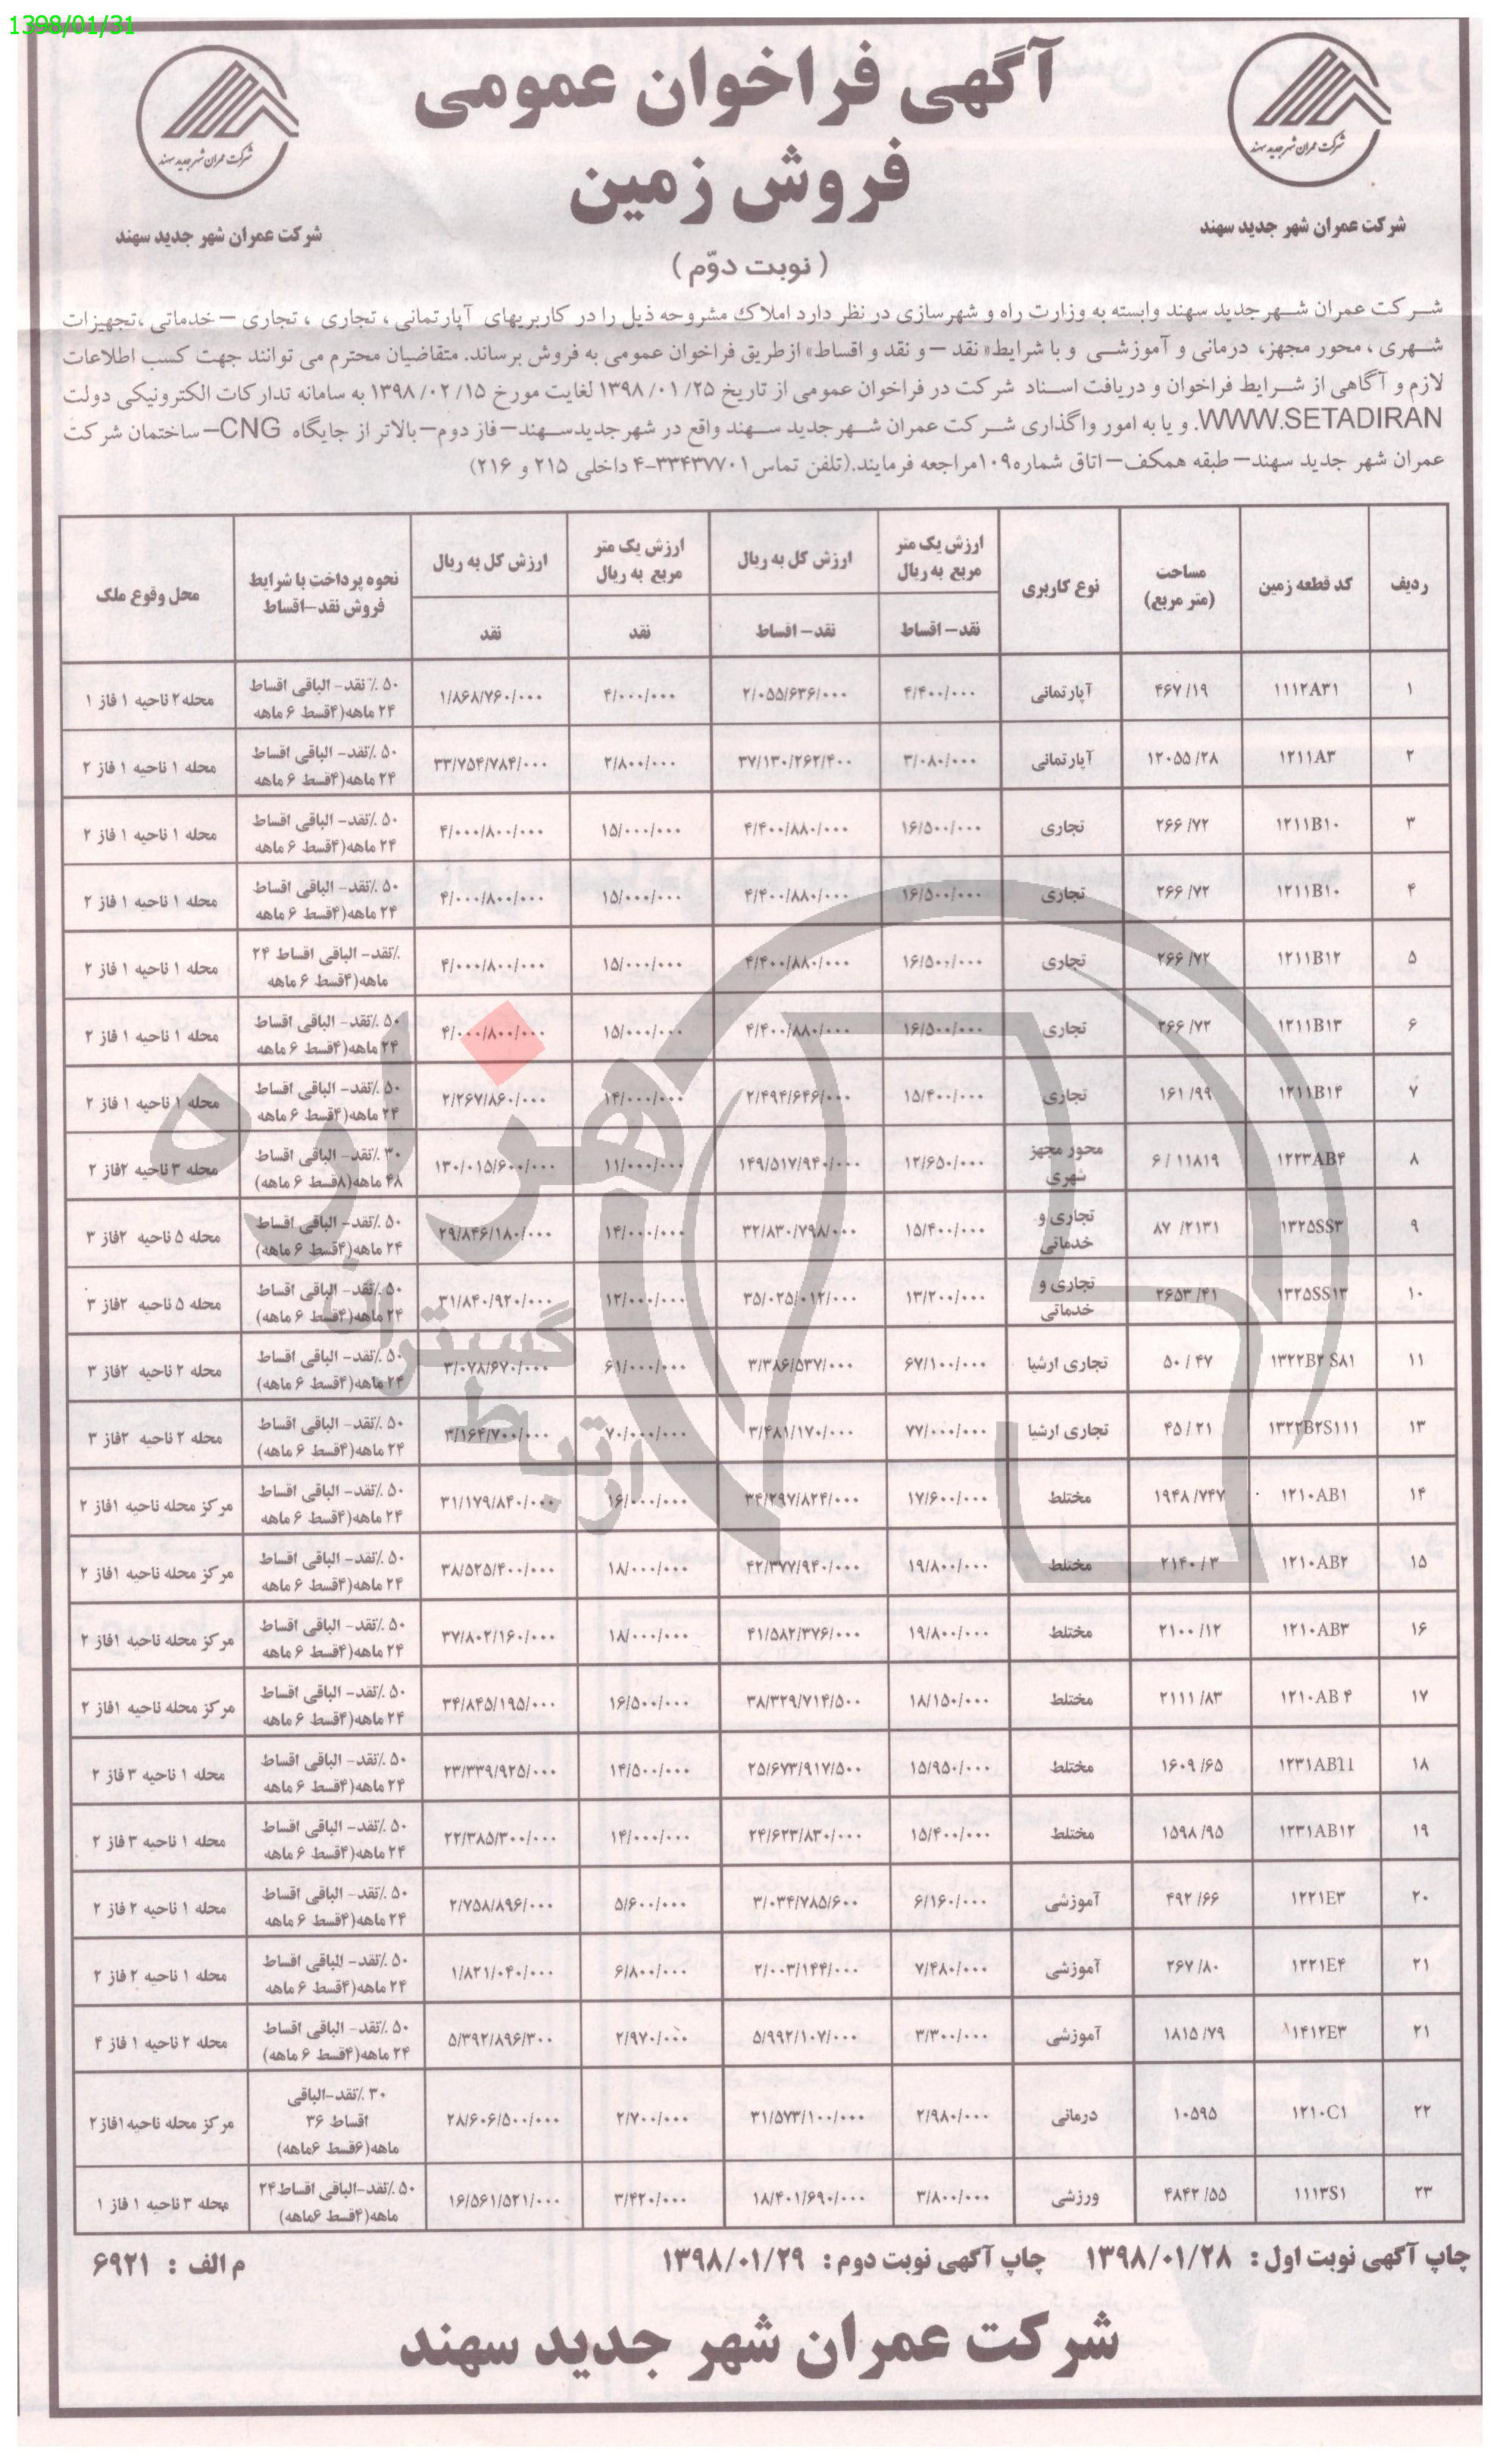 1398/01/31
آگهی فراخوان عمومی
فروش زمین
(نوبت دوّم)
شرکت عمران شهر جدید سهند
شرکت عمران شهر جدید سهند
شرکت عمران شهر جدید سهند
شرکت عمران شهر جدید سهند
شرکت عمران شهر جدید سهند وابسته به وزارت راه و شهرسازی در نظر دارد املاک مشروحه ذیل را در کاربریهای آپارتمانی ، تجاری ، تجاری – خدماتی ،تجهیزات
شهری ، محور مجهز، درمانی و آموزشی و با شرایط« نقد – و نقد و اقساط» ازطریق فراخوان عمومی به فروش برساند. متقاضیان محترم می توانند جهت کسب اطلاعات
لازم و آگاهی از شرایط فراخوان و دریافت اسناد شرکت در فراخوان عمومی از تاریخ ۱۳۹۸/۰۱/۲۵ لغایت مورخ ۱۳۹۸/۰۲/۱۵ به سامانه تدارکات الکترونیکی دولت
WWW.SETADIRAN. و یا به امور واگذاری شرکت عمران شهرجدید سهند واقع در شهرجدیدسهند–فاز دوم–بالاتر از جایگاه CNG–ساختمان شرکت
عمران شهر جدید سهند– طبقه همکف–اتاق شماره۱۰۹مراجعه فرمایند.(تلفن تماس۳۳۴۳۷۷۰۱-۴ داخلی ۲۱۵ و ۲۱۶)
ردیف کد قطعه زمین مساحت (متر مربع) نوع کاربری ارزش یک متر مربع به ریال نقد– اقساط ارزش کل به ریال نقد– اقساط ارزش یک متر مربع به ریال نقد ارزش کل به ریال نقد نحوه پرداخت با شرایط فروش نقد–اقساط محل وقوع ملک
۱ ۱۱۱۲A۳۱ ۴۶۷/۱۹ آپارتمانی ۴/۴۰۰/۰۰۰ ۲/۰۵۵/۶۳۶/۰۰۰ ۴/۰۰۰/۰۰۰ ۱/۸۶۸/۷۶۰/۰۰۰ ۵۰ ٪ نقد– الباقی اقساط ۲۴ ماهه(۴قسط ۶ ماهه محله ۲ ناحیه ۱ فاز ۱
۲ ۱۲۱۱A۳ ۱۲۰۵۵/۲۸ آپارتمانی ۳/۰۸۰/۰۰۰ ۳۷/۱۳۰/۲۶۲/۴۰۰ ۲/۸۰۰/۰۰۰ ۳۳/۷۵۴/۷۸۴/۰۰۰ ۵۰ ٪نقد– الباقی اقساط ۲۴ ماهه(۴قسط ۶ ماهه محله ۱ ناحیه ۱ فاز ۲
۳ ۱۲۱۱B۱۰ ۲۶۶/۷۲ تجاری ۱۶/۵۰۰/۰۰۰ ۴/۴۰۰/۸۸۰/۰۰۰ ۱۵/۰۰۰/۰۰۰ ۴/۰۰۰/۸۰۰/۰۰۰ ۵۰ ٪نقد– الباقی اقساط ۲۴ ماهه(۴قسط ۶ ماهه محله ۱ ناحیه ۱ فاز ۲
۴ ۱۲۱۱B۱۰ ۲۶۶/۷۲ تجاری ۱۶/۵۰۰/۰۰۰ ۴/۴۰۰/۸۸۰/۰۰۰ ۱۵/۰۰۰/۰۰۰ ۴/۰۰۰/۸۰۰/۰۰۰ ۵۰ ٪نقد– الباقی اقساط ۲۴ ماهه(۴قسط ۶ ماهه محله ۱ ناحیه ۱ فاز ۲
۵ ۱۲۱۱B۱۲ ۲۶۶/۷۲ تجاری ۱۶/۵۰۰/۰۰۰ ۴/۴۰۰/۸۸۰/۰۰۰ ۱۵/۰۰۰/۰۰۰ ۴/۰۰۰/۸۰۰/۰۰۰ ٪نقد– الباقی اقساط ۲۴ ماهه(۴قسط ۶ ماهه محله ۱ ناحیه ۱ فاز ۲
۶ ۱۲۱۱B۱۳ ۲۶۶/۷۲ تجاری ۱۶/۵۰۰/۰۰۰ ۴/۴۰۰/۸۸۰/۰۰۰ ۱۵/۰۰۰/۰۰۰ ۴/۰۰۰/۸۰۰/۰۰۰ ۵۰ ٪نقد– الباقی اقساط ۲۴ ماهه(۴قسط ۶ ماهه محله ۱ ناحیه ۱ فاز ۲
۷ ۱۲۱۱B۱۴ ۱۶۱/۹۹ تجاری ۱۵/۴۰۰/۰۰۰ ۲/۴۹۴/۶۴۶/۰۰۰ ۱۴/۰۰۰/۰۰۰ ۲/۲۶۷/۸۶۰/۰۰۰ ۵۰ ٪نقد– الباقی اقساط ۲۴ ماهه(۴قسط ۶ ماهه محله ۱ ناحیه ۱ فاز ۲
۸ ۱۲۲۳AB۴ ۶/۱۱۸۱۹ محور مجهز شهری ۱۲/۶۵۰/۰۰۰ ۱۴۹/۵۱۷/۹۴۰/۰۰۰ ۱۱/۰۰۰/۰۰۰ ۱۳۰/۰۱۵/۶۰۰/۰۰۰ ۳۰ ٪نقد– الباقی اقساط ۴۸ ماهه(۸قسط ۶ ماهه) محله ۳ ناحیه ۲فاز ۲
۹ ۱۳۲۵SS۳ ۸۷/۲۱۳۱ تجاری و خدماتی ۱۵/۴۰۰/۰۰۰ ۳۲/۸۳۰/۷۹۸/۰۰۰ ۱۴/۰۰۰/۰۰۰ ۲۹/۸۴۶/۱۸۰/۰۰۰ ۵۰ ٪نقد– الباقی اقساط ۲۴ ماهه(۴قسط ۶ ماهه) محله ۵ ناحیه ۲فاز ۳
۱۰ ۱۳۲۵SS۱۳ ۲۶۵۳/۴۱ تجاری و خدماتی ۱۳/۲۰۰/۰۰۰ ۳۵/۰۲۵/۰۱۲/۰۰۰ ۱۲/۰۰۰/۰۰۰ ۳۱/۸۴۰/۹۲۰/۰۰۰ ۵۰ ٪نقد– الباقی اقساط ۲۴ ماهه(۴قسط ۶ ماهه) محله ۵ ناحیه ۲فاز ۳
۱۱ ۱۳۲۲B۲ S۸۱ ۵۰/۴۷ تجاری ارشیا ۶۷/۱۰۰/۰۰۰ ۳/۳۸۶/۵۳۷/۰۰۰ ۶۱/۰۰۰/۰۰۰ ۳/۰۷۸/۶۷۰/۰۰۰ ۵۰ ٪نقد– الباقی اقساط ۲۴ ماهه(۴قسط ۶ ماهه) محله ۲ ناحیه ۲فاز ۳
۱۳ ۱۳۲۲B۲S۱۱۱ ۴۵/۲۱ تجاری ارشیا ۷۷/۰۰۰/۰۰۰ ۳/۴۸۱/۱۷۰/۰۰۰ ۷۰/۰۰۰/۰۰۰ ۳/۱۶۴/۷۰۰/۰۰۰ ۵۰ ٪نقد– الباقی اقساط ۲۴ ماهه(۴قسط ۶ ماهه) محله ۲ ناحیه ۲فاز ۳
۱۴ ۱۲۱۰AB۱ ۱۹۴۸/۷۴۷ مختلط ۱۷/۶۰۰/۰۰۰ ۳۴/۲۹۷/۸۲۴/۰۰۰ ۱۶/۰۰۰/۰۰۰ ۳۱/۱۷۹/۸۴۰/۰۰۰ ۵۰ ٪نقد– الباقی اقساط ۲۴ ماهه(۴قسط ۶ ماهه مرکز محله ناحیه ۱فاز ۲
۱۵ ۱۲۱۰AB۲ ۲۱۴۰/۳ مختلط ۱۹/۸۰۰/۰۰۰ ۴۲/۳۷۷/۹۴۰/۰۰۰ ۱۸/۰۰۰/۰۰۰ ۳۸/۵۲۵/۴۰۰/۰۰۰ ۵۰ ٪نقد– الباقی اقساط ۲۴ ماهه(۴قسط ۶ ماهه مرکز محله ناحیه ۱فاز ۲
۱۶ ۱۲۱۰AB۳ ۲۱۰۰/۱۲ مختلط ۱۹/۸۰۰/۰۰۰ ۴۱/۵۸۲/۳۷۶/۰۰۰ ۱۸/۰۰۰/۰۰۰ ۳۷/۸۰۲/۱۶۰/۰۰۰ ۵۰ ٪نقد– الباقی اقساط ۲۴ ماهه(۴قسط ۶ ماهه مرکز محله ناحیه ۱فاز ۲
۱۷ ۱۲۱۰AB ۴ ۲۱۱۱/۸۳ مختلط ۱۸/۱۵۰/۰۰۰ ۳۸/۳۲۹/۷۱۴/۵۰۰ ۱۶/۵۰۰/۰۰۰ ۳۴/۸۴۵/۱۹۵/۰۰۰ ۵۰ ٪نقد– الباقی اقساط ۲۴ ماهه(۴قسط ۶ ماهه مرکز محله ناحیه ۱فاز ۲
۱۸ ۱۲۳۱AB11 ۱۶۰۹/۶۵ مختلط ۱۵/۹۵۰/۰۰۰ ۲۵/۶۷۳/۹۱۷/۵۰۰ ۱۴/۵۰۰/۰۰۰ ۲۳/۳۳۹/۹۲۵/۰۰۰ ۵۰ ٪نقد– الباقی اقساط ۲۴ ماهه(۴قسط ۶ ماهه محله ۱ ناحیه ۳ فاز ۲
۱۹ ۱۲۳۱AB۱۲ ۱۵۹۸/۹۵ مختلط ۱۵/۴۰۰/۰۰۰ ۲۴/۶۲۳/۸۳۰/۰۰۰ ۱۴/۰۰۰/۰۰۰ ۲۲/۳۸۵/۳۰۰/۰۰۰ ۵۰ ٪نقد– الباقی اقساط ۲۴ ماهه(۴قسط ۶ ماهه محله ۱ ناحیه ۳ فاز ۲
۲۰ ۱۲۲۱E۳ ۴۹۲/۶۶ آموزشی ۶/۱۶۰/۰۰۰ ۳/۰۳۴/۷۸۵/۶۰۰ ۵/۶۰۰/۰۰۰ ۲/۷۵۸/۸۹۶/۰۰۰ ۵۰ ٪نقد– الباقی اقساط ۲۴ ماهه(۴قسط ۶ ماهه محله ۱ ناحیه ۲ فاز ۲
۲۱ ۱۲۲۱E۴ ۲۶۷/۸۰ آموزشی ۷/۴۸۰/۰۰۰ ۲/۰۰۳/۱۴۴/۰۰۰ ۶/۸۰۰/۰۰۰ ۱/۸۲۱/۰۴۰/۰۰۰ ۵۰ ٪نقد– الباقی اقساط ۲۴ ماهه(۴قسط ۶ ماهه محله ۱ ناحیه ۲ فاز ۲
۲۱ ۱۴۱۲E۳ ۱۸۱۵/۷۹ آموزشی ۳/۳۰۰/۰۰۰ ۵/۹۹۲/۱۰۷/۰۰۰ ۲/۹۷۰/۰۰۰ ۵/۳۹۲/۸۹۶/۳۰۰ ۵۰ ٪نقد– الباقی اقساط ۲۴ ماهه(۴قسط ۶ ماهه) محله ۲ ناحیه ۱ فاز ۴
۲۲ ۱۲۱۰C۱ ۱۰۵۹۵ درمانی ۲/۹۸۰/۰۰۰ ۳۱/۵۷۳/۱۰۰/۰۰۰ ۲/۷۰۰/۰۰۰ ۲۸/۶۰۶/۵۰۰/۰۰۰ ۳۰ ٪نقد–الباقی اقساط ۳۶ ماهه(۶قسط ۶ماهه) مرکز محله ناحیه ۱فاز ۲
۲۳ ۱۱۱۳S۱ ۴۸۴۲/۵۵ ورزشی ۳/۸۰۰/۰۰۰ ۱۸/۴۰۱/۶۹۰/۰۰۰ ۳/۴۲۰/۰۰۰ ۱۶/۵۶۱/۵۲۱/۰۰۰ ۵۰ ٪نقد–الباقی اقساط۲۴ ماهه(۴قسط ۶ماهه) محله ۳ ناحیه ۱ فاز ۱
چاپ آگهی نوبت اول : ۱۳۹۸/۰۱/۲۸ چاپ آگهی نوبت دوم : ۱۳۹۸/۰۱/۲۹ م الف : ۶۹۲۱
شرکت عمران شهر جدید سهند
هزاره
ارتباط گستران